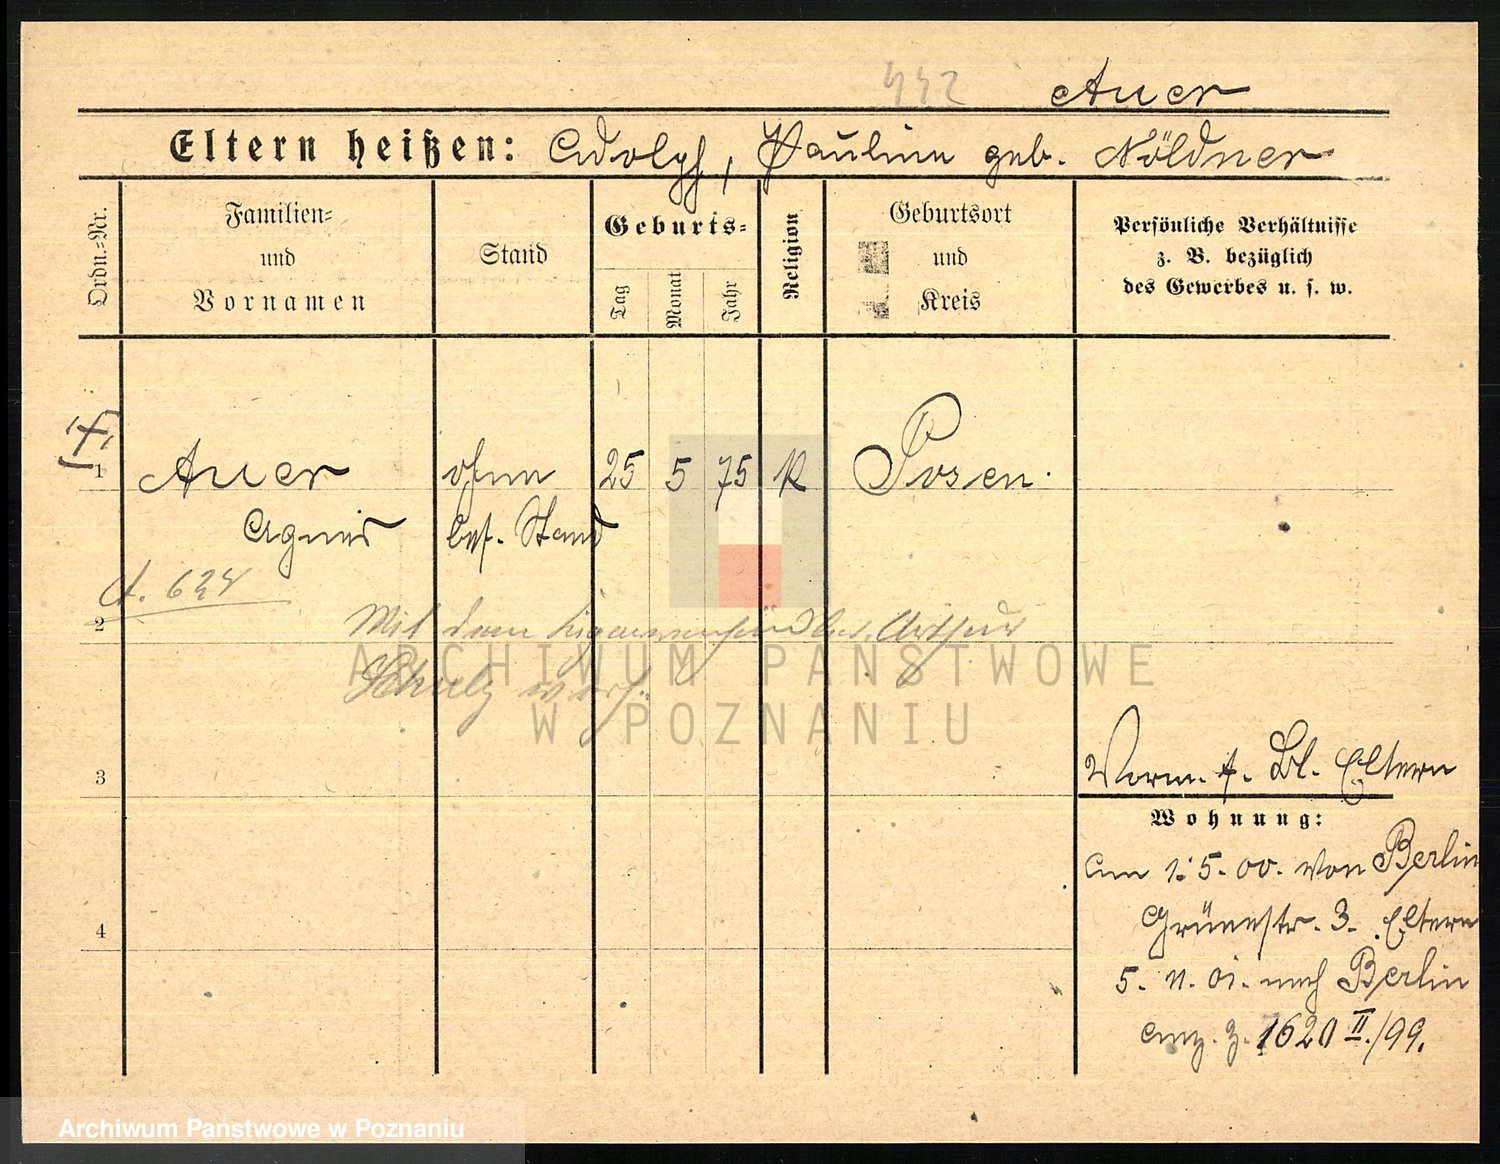 442 Auer
Eltern heißen: Adolph, Pauline geb. Nöldner
Ordn.=Nr.
Familien=
und
Vornamen
Stand
Geburts=
Tag
Monat
Jahr
Religion
Geburtsort
und
Kreis
Persönliche Verhältnisse
z. B. bezüglich
des Gewerbes u. s. w.
1 Auer ohne 25 5 75 K Posen.
Agnes bes. Stand
A. 624
2
Mit dem Cigarrenhändler Arthur
Schulz verh.
ARCHIWUM PAŃSTWOWE
W POZNANIU
3
Vorm. f. Bl. Eltern
Wohnung:
Am 1.5.00. von Berlin
Grünestr. 3. Eltern
4
5. 11. 01. nach Berlin
anz. Z. 1620 II./99.
Archiwum Państwowe w Poznaniu